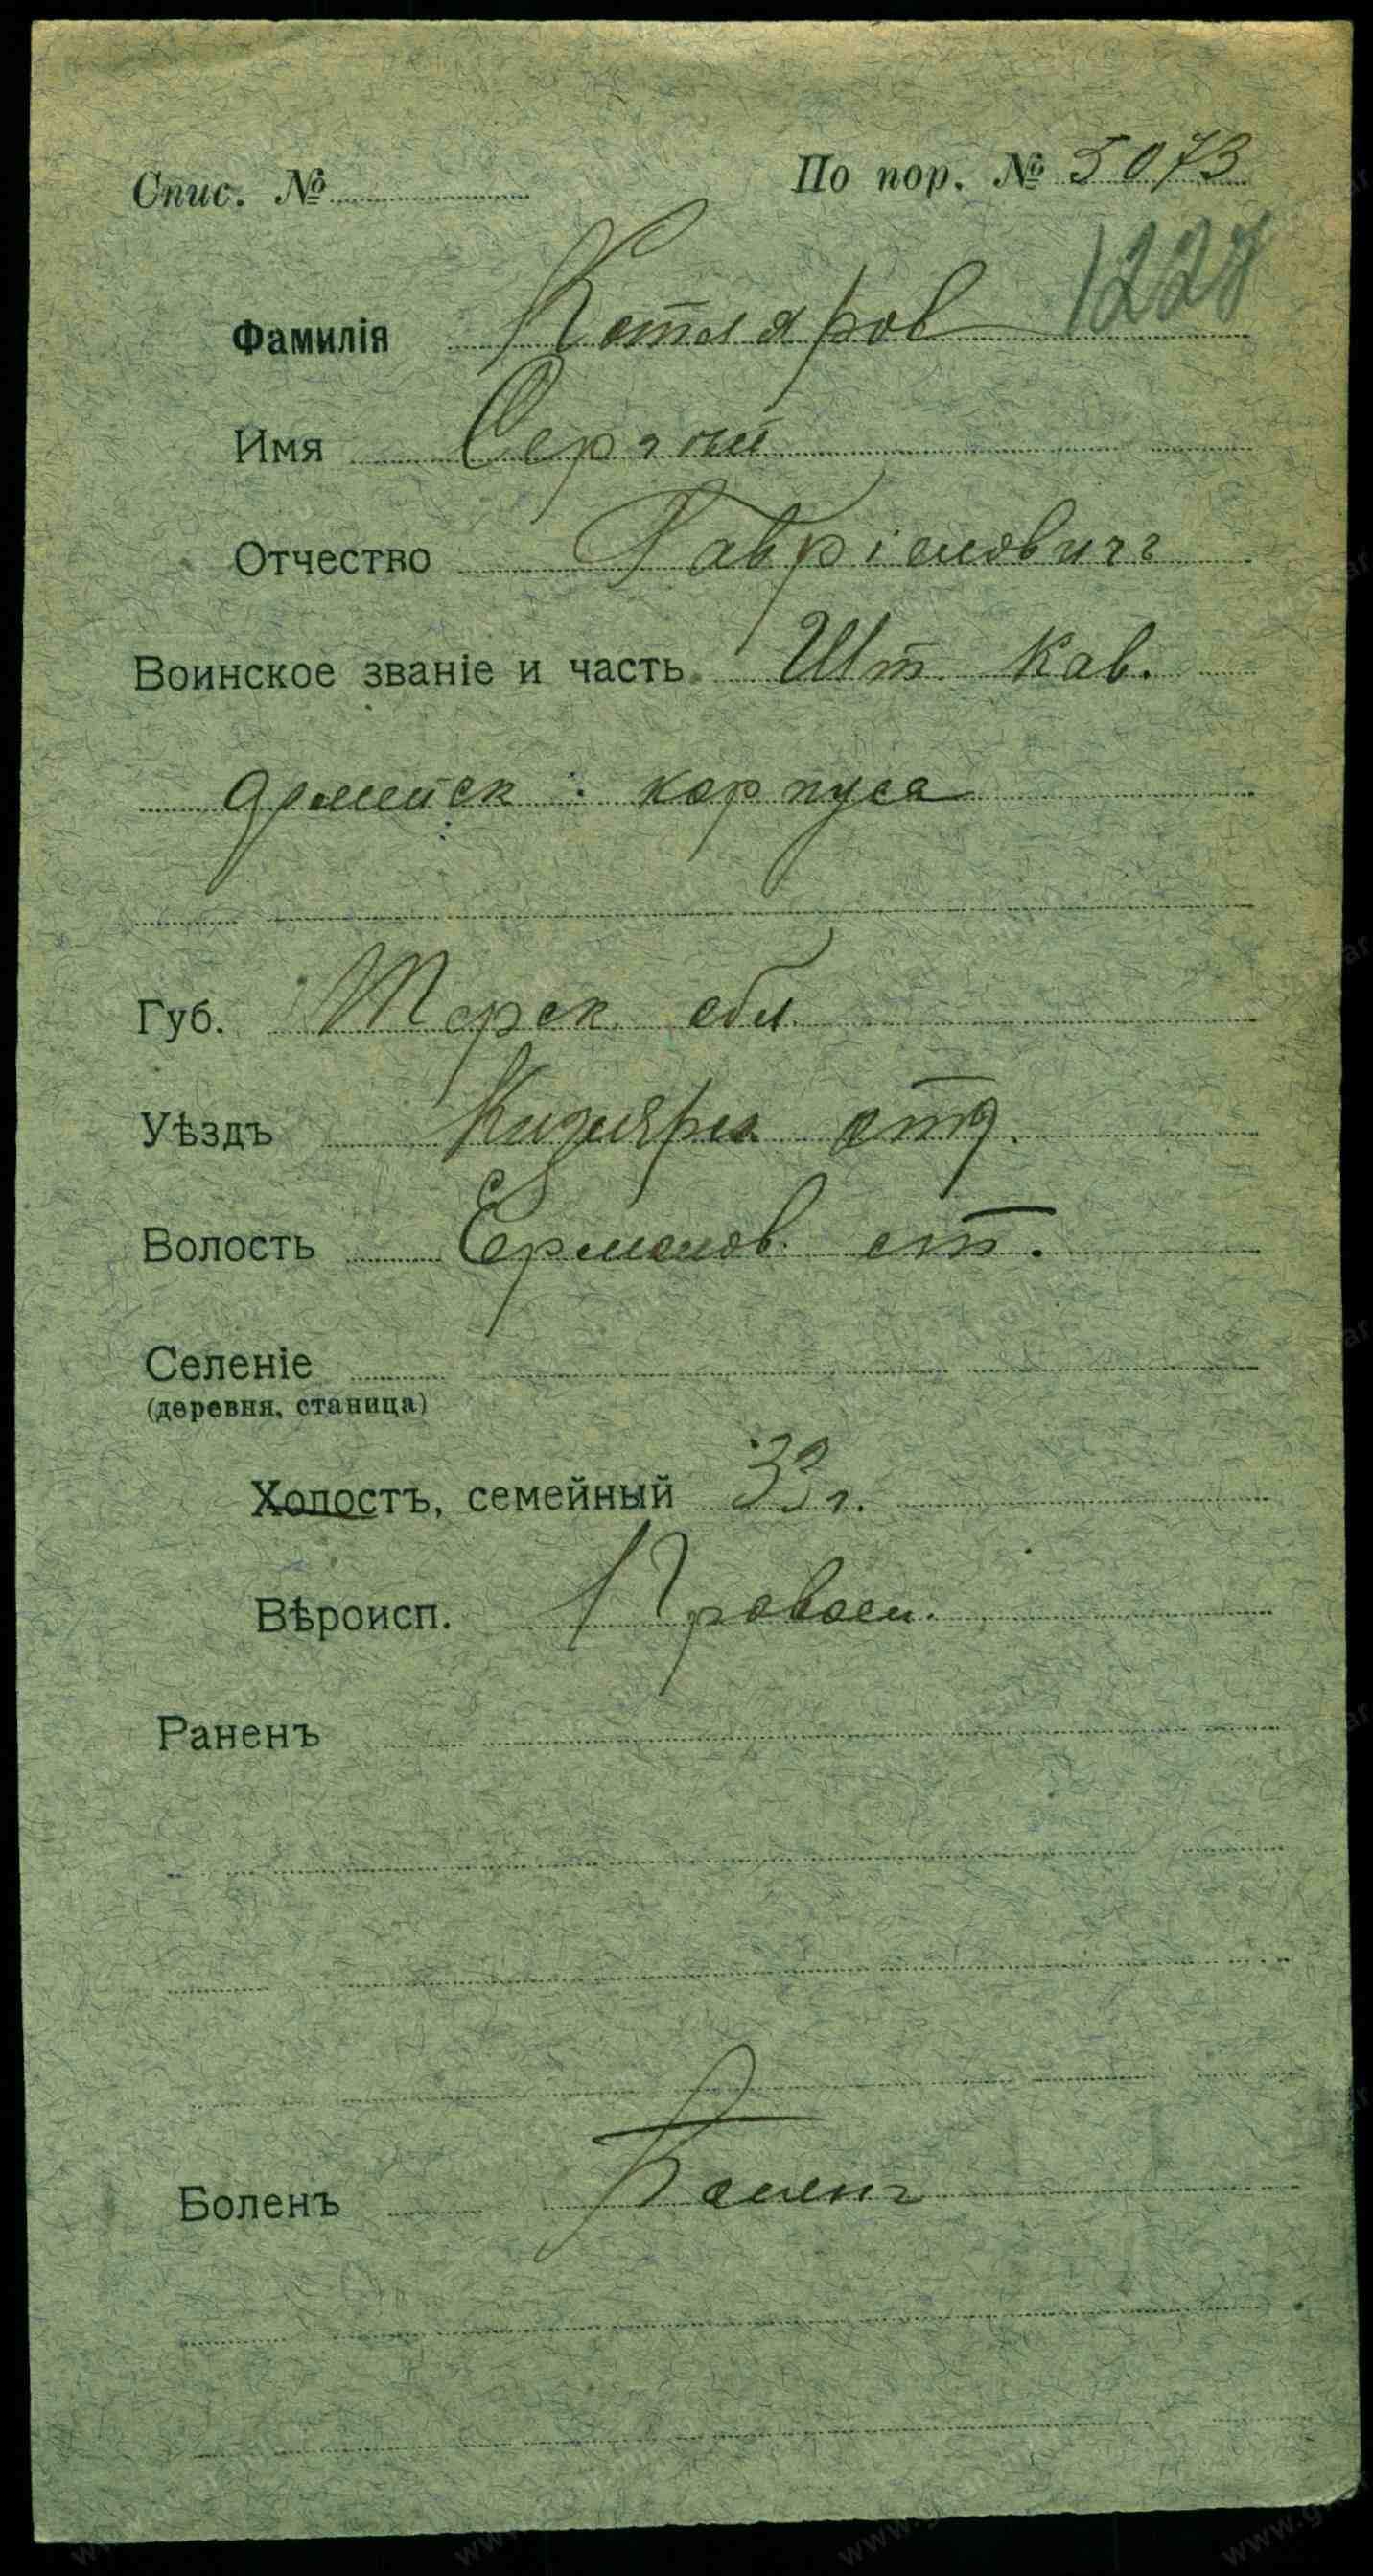 Спис. № По пор. № 5073
1227
Фамилія Котляров
Имя Сергѣй
Отчество Гавріиловичъ
Воинское званіе и часть Шт. Кав.
Армейск. корпуса
Губ. Терск. обл.
Уѣздъ Кизлярск. отд.
Волость Ермолов. ст.
Селеніе
(деревня, станица)
Холостъ, семейный 33 г.
Вѣроисп. Правосл.
Раненъ
Боленъ Боленъ